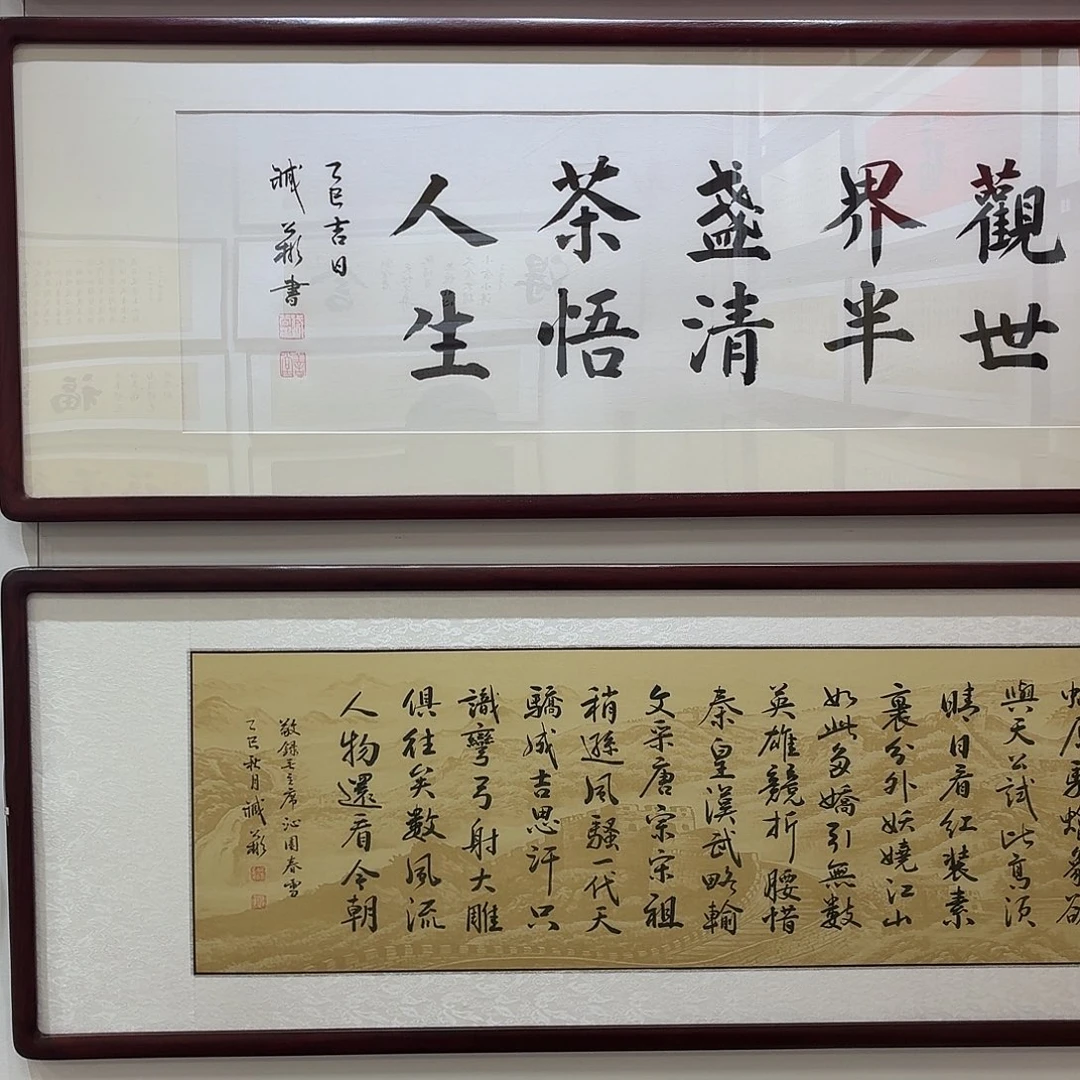 觀世
界半
盏清
茶悟
人生
乙巳吉日
誠書
與天公試比高須
晴日看红装素
裹分外妖嬈江山
如此多嬌引無數
英雄競折腰惜
秦皇漢武略輸
文采唐宗宋祖
稍遜風騷一代天
驕成吉思汗只
識彎弓射大雕
俱往矣數風流
人物還看今朝
敬錄毛主席沁園春雪
乙巳秋月誠